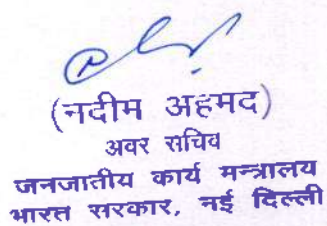 (नदीम अहमद)
अवर सचिव
जनजातीय कार्य मन्त्रालय
भारत सरकार, नई दिल्ली